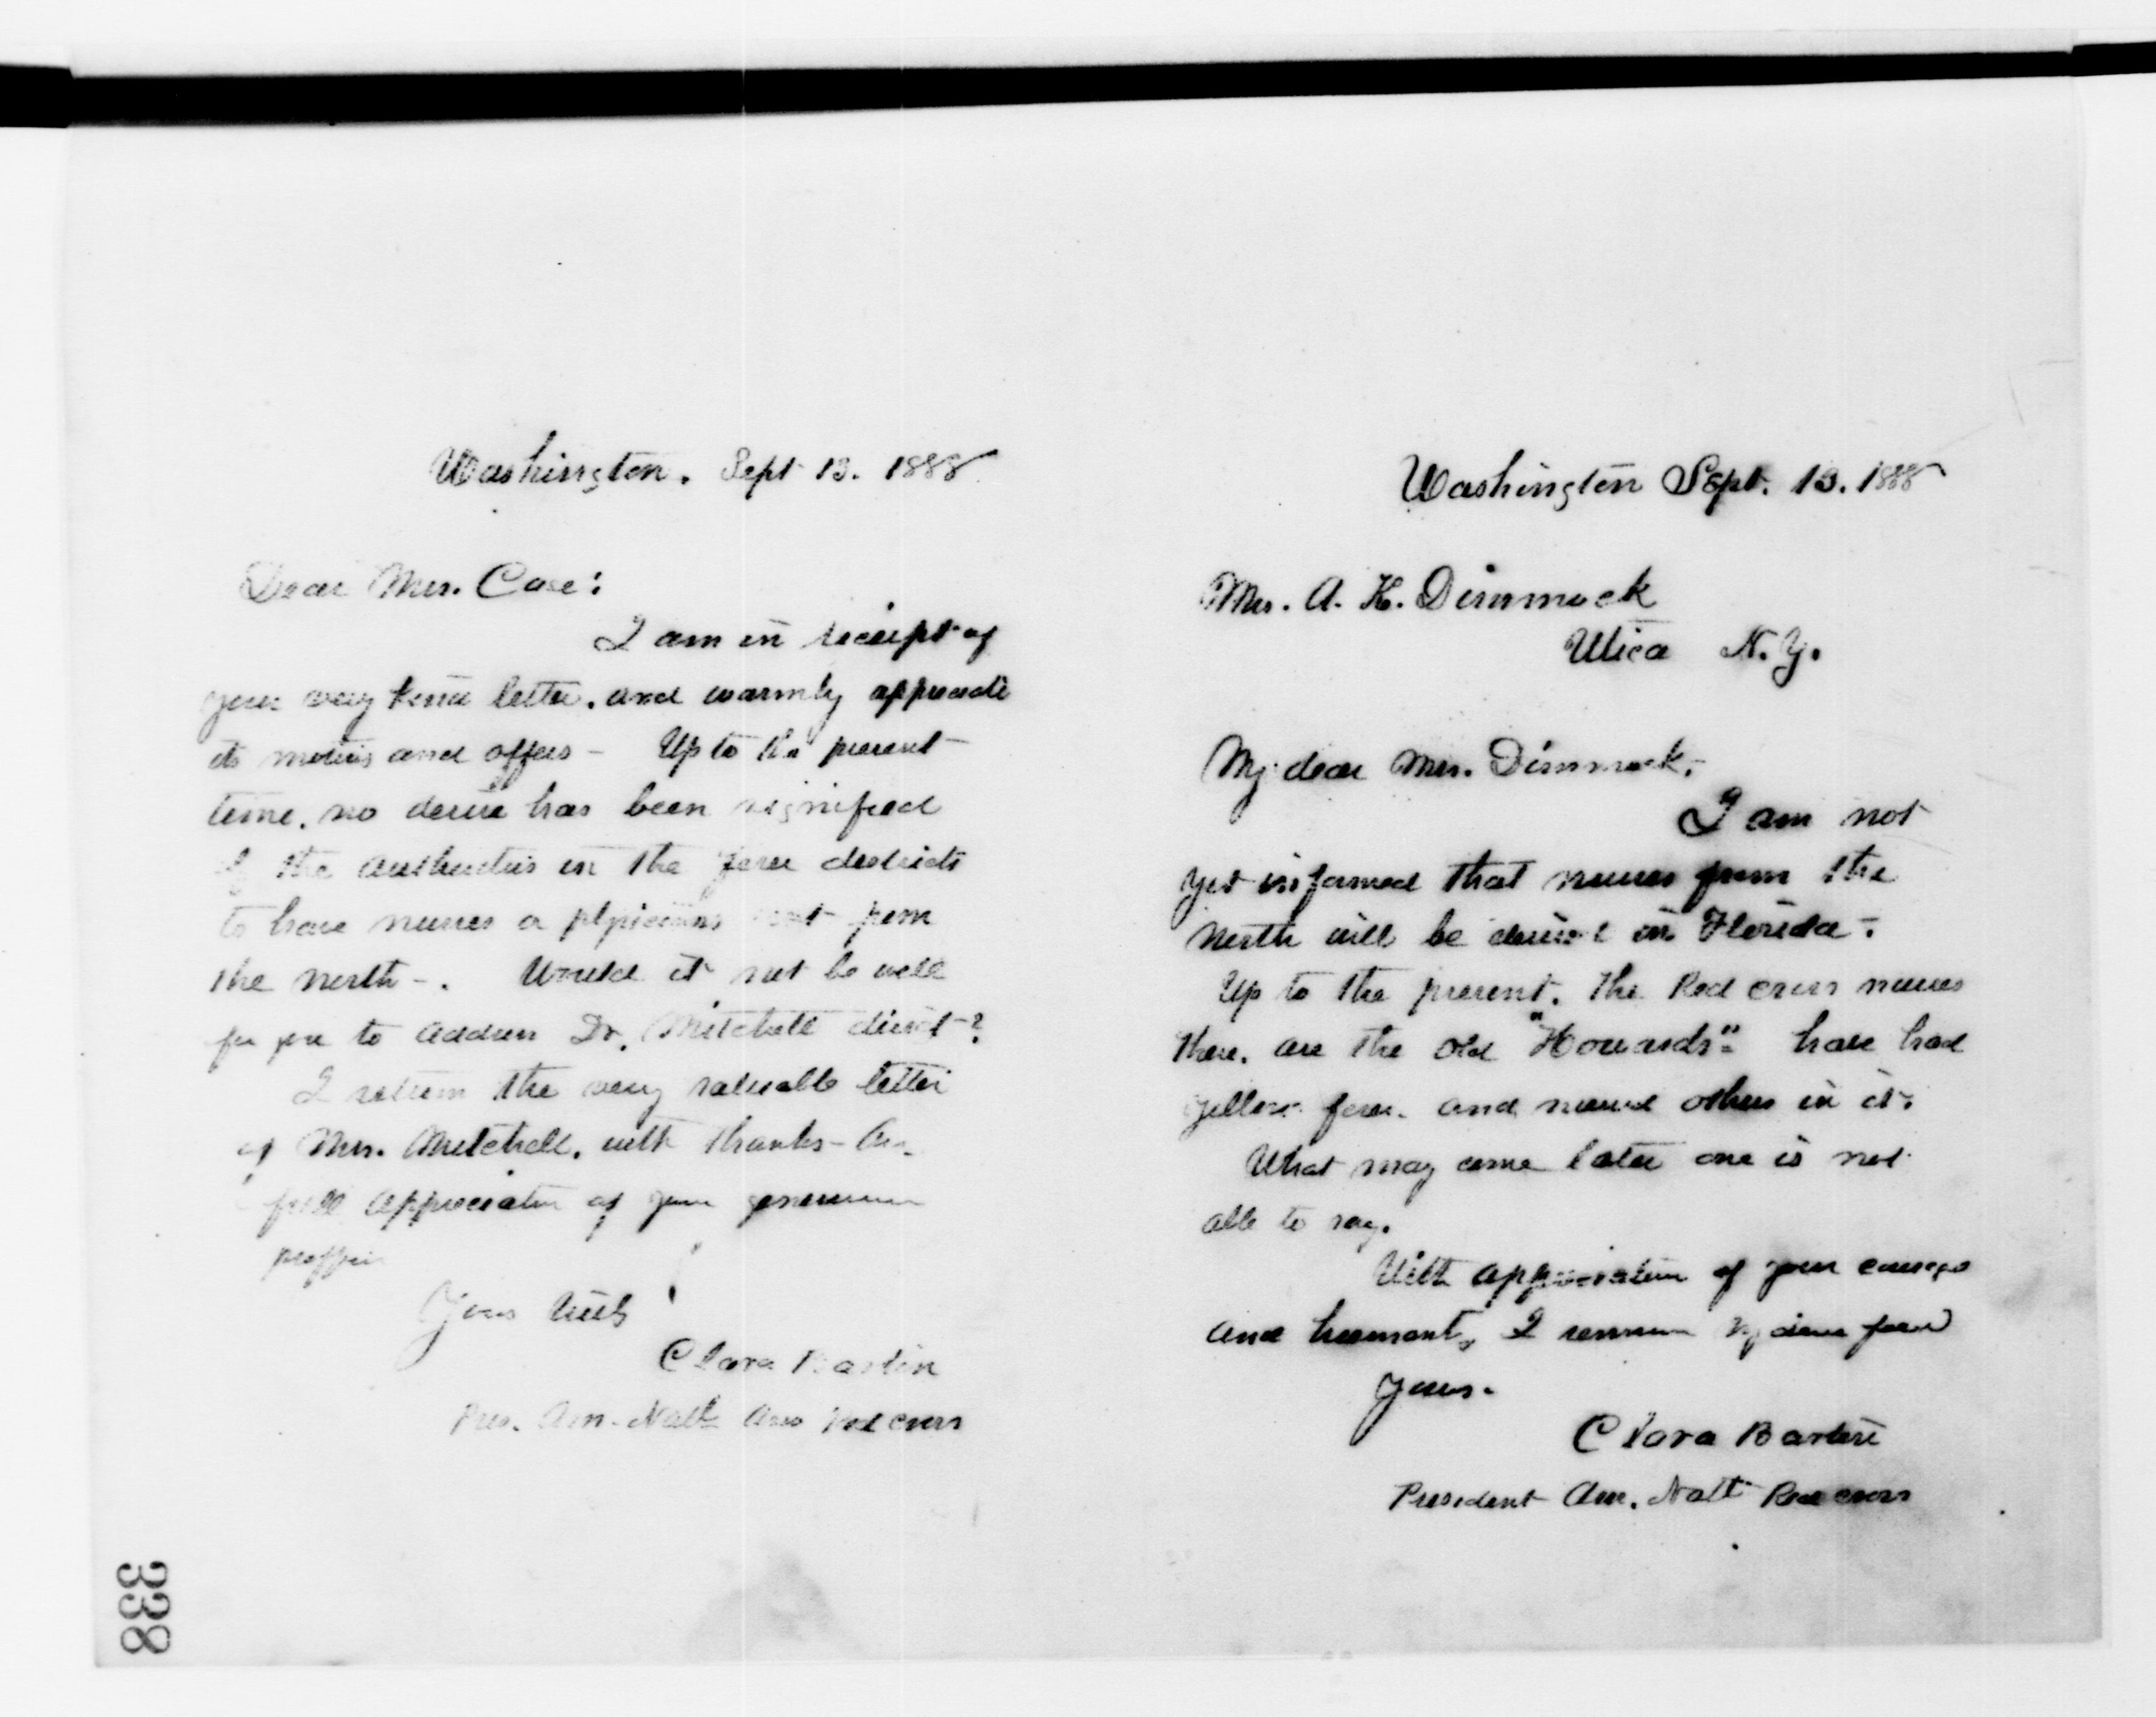 Washington. Sept 13. 1888
Dear Mrs. Case:
I am in receipt of
your very kind letter. and warmly appreciate
its motives and offers - Up to the present
time. no desire has been signified
by the authorities in the fever districts
to have nurses or physicians from
the north -. Would it not be well
for you to address Dr. Mitchell direct -?
I return the very valuable letter
of Mrs. Mitchell. with thanks -
full appreciation of your generous
Yours truly
Clara Barton
Pres. Am. Natl Asso Red Cross
Washington Sept. 13. 1888
Mrs. A. K. Dimmock
Utica N.Y.
My dear Mrs. Dimmock,
I am not
yet informed that nurses from the
North will be desired in Florida -.
Up to the present. the Red Cross nurses
there. are the old "Howards" - have had
yellow fever. and nursed others in it.
What may come later one is not
able to say.
With appreciation of your courage
and humanity, I remain My dear friend
Yours.
Clara Barton
President Am. Natl Red Cross
338